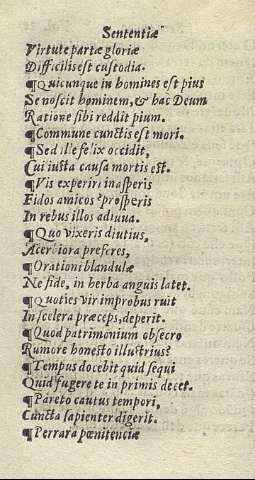 Sententiæ
Virtute partæ gloriæ
Difficilis est custodia.
¶Quicunque in homines est pius
Se noscit hominem, & hac Deum
Ratione sibi reddit pium.
¶Commune cunctis est mori.
¶Sed ille felix occidit,
Cui iusta causa mortis est.
¶Vis experiri in asperis
Fidos amicos? prosperis
In rebus illos adiuua.
¶Quo vixeris diutius,
Acerbiora preferes,
¶Orationi blandulæ
Ne fide, in herba anguis latet.
¶Quoties vir improbus ruit
In scelera præceps, deperit.
¶Quod patrimonium obsecro
Rumore honesto illustrius?
¶Tempus docebit quid sequi
Quid fugere te in primis decet.
¶Pareto cautus tempori,
Cuncta sapienter digerit.
¶Perrara pœnitenciæ